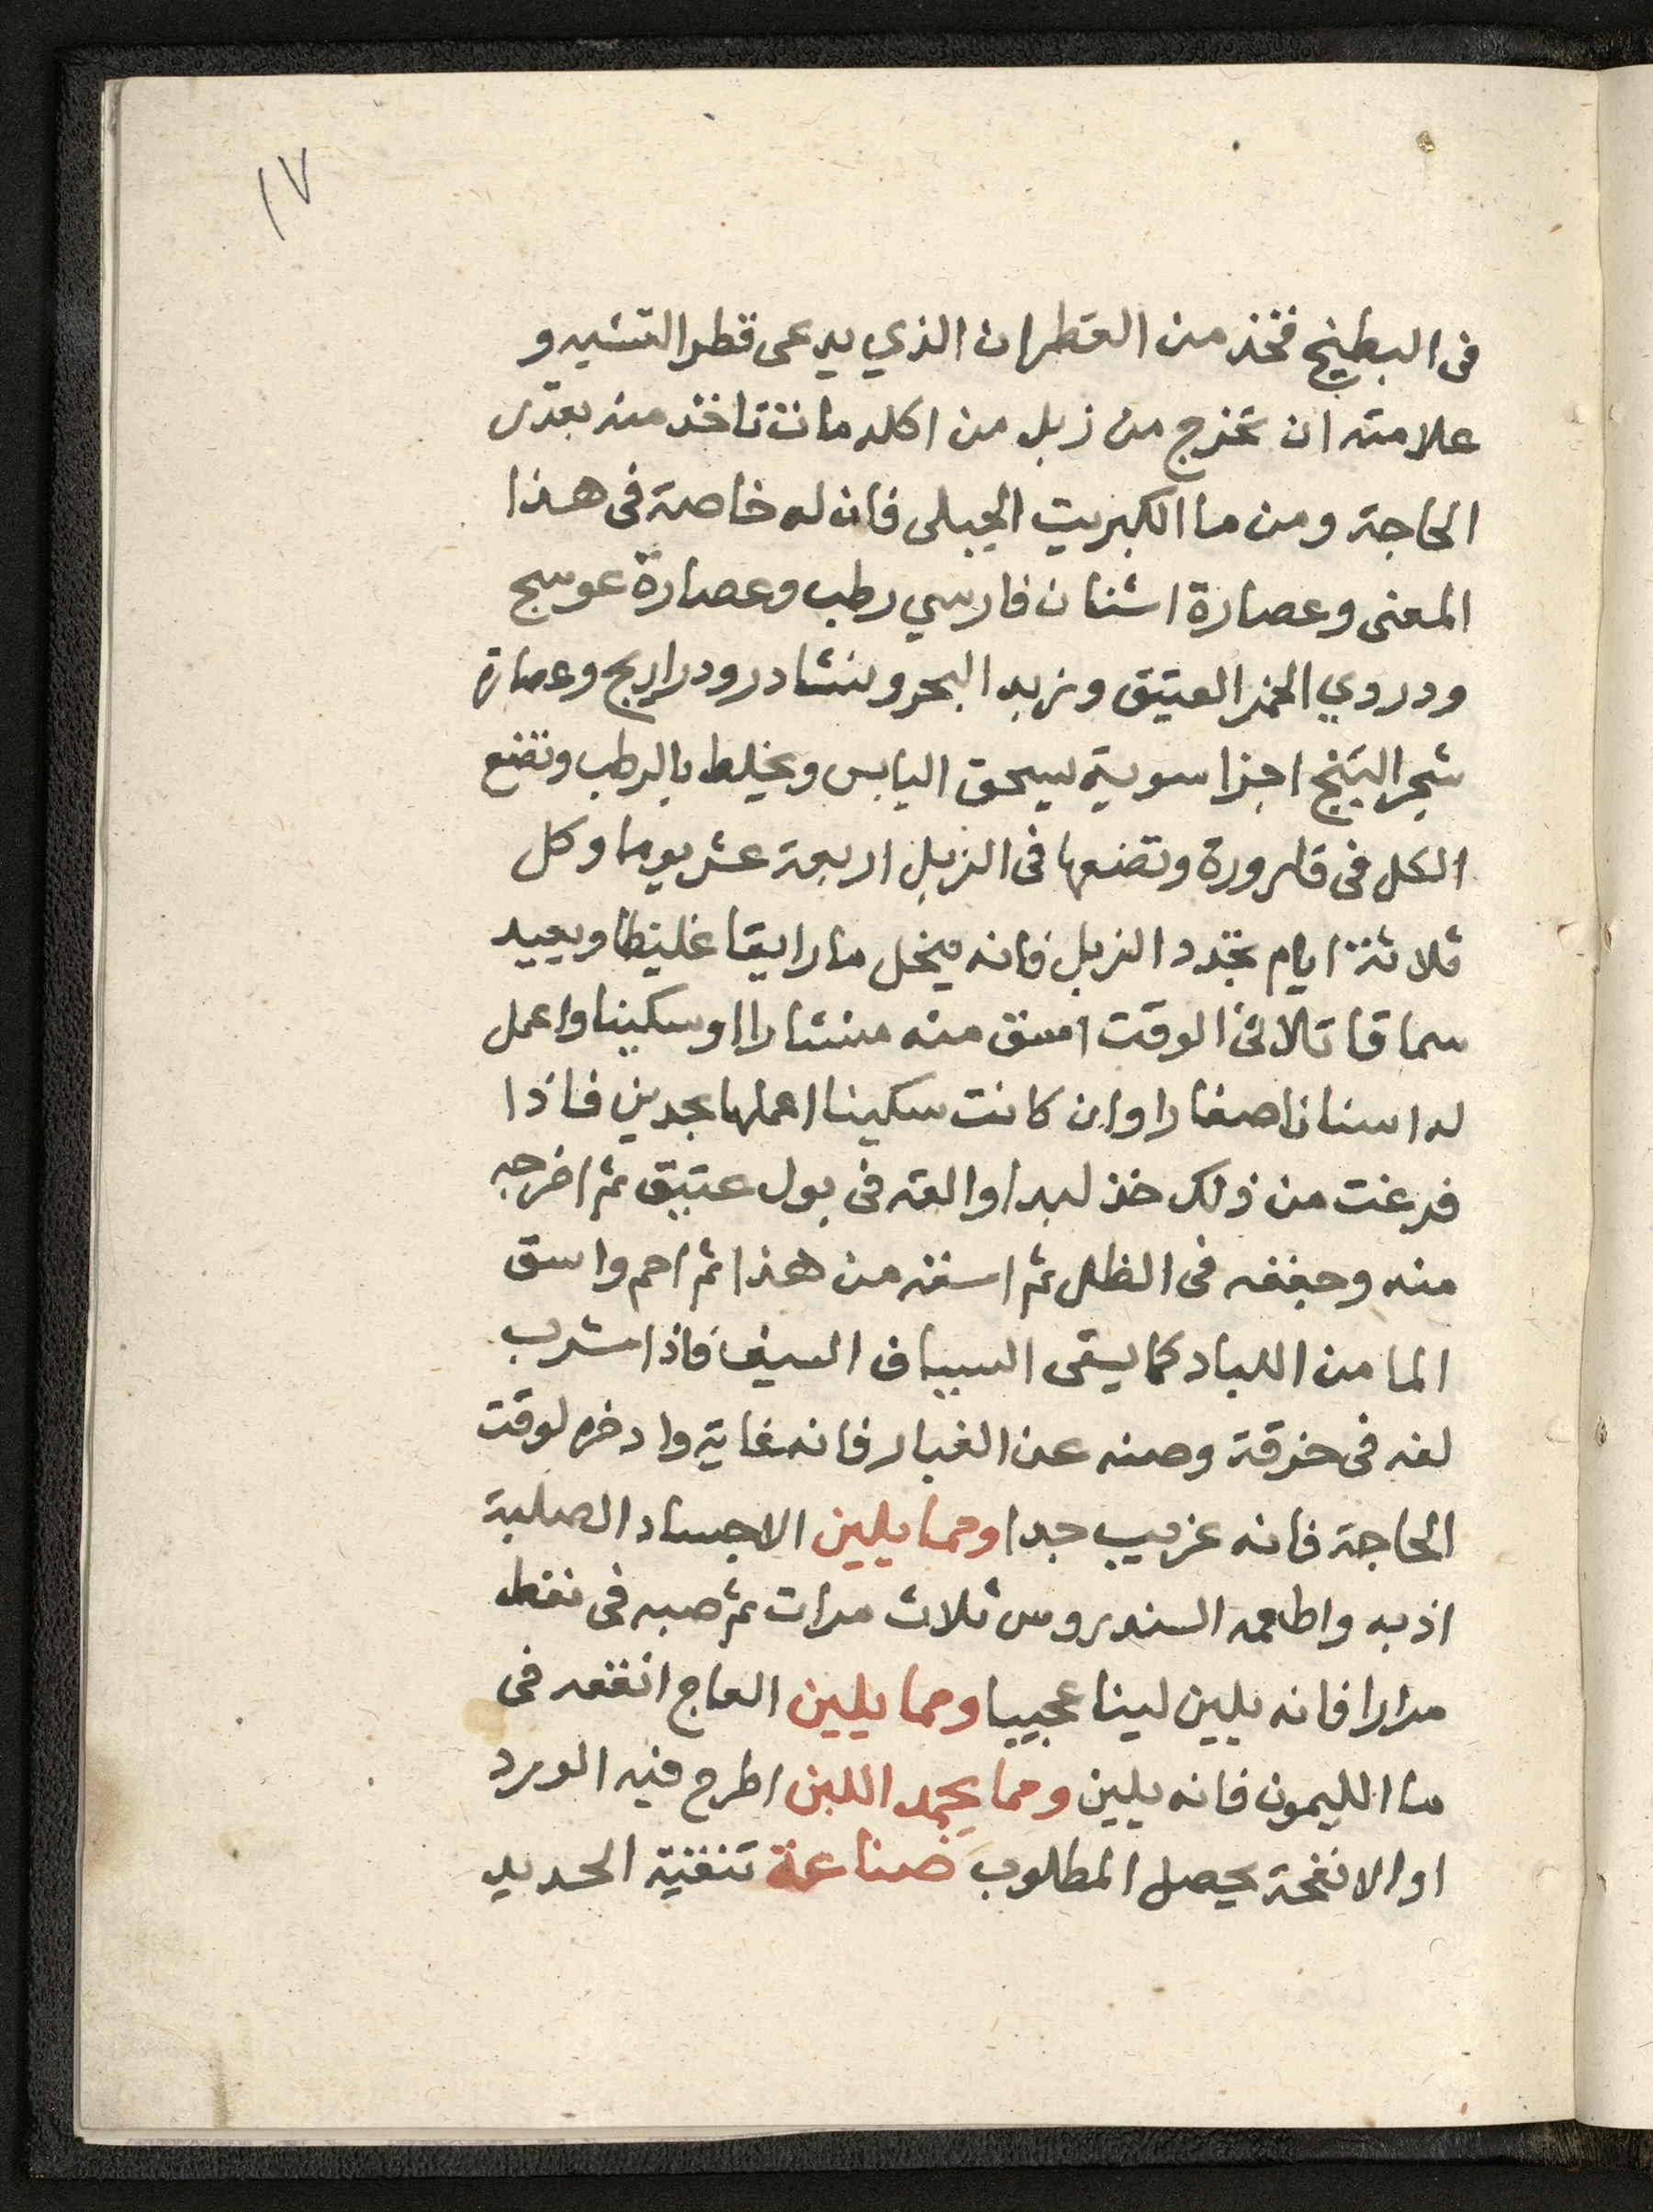 ١٧
فى البطيخ فخذ من القطران الذي يدعى قطر التشير و
علامته ان تخرج من زبل من اكله مات تاخذ منه بقدر
الحاجة ومن ما الكبريت الجبلى فان له خاصة فى هذا
المعنى وعصارة اشنان فارسي رطب وعصارة عوسج
ودردي الخمر العتيق وزبد البحر ونشادر ودراريح وعصارة
شجر البنج اجزا سوية يسحق اليابس ويخلط بالرطب وتضع
الكل فى قارورة وتضعها فى الزبل اربعة عشر يوما وكل
ثلاثة ايام تجدد الزبل فانه ينحل ما رايقا غليظا ويعيد
سماقا تالاثى الوقت اسق منه منشارا او سكينا واعمل
له اسنانا صغارا وان كانت سكينا اعملها بحدين فاذا
فرغت من ذلك خذ لبدا والقه فى بول عتيق ثم اخرجه
منه وجففه فى الظل ثم اسقه من هذا ثم احم واسق
الما من اللباد كما يسقى السياف السيف فاذا شرب
لفه فى خرقة وصنه عن الغبار فانه غاية وادخره لوقت
الحاجة فانه غريب جدا ومما يلين الاجساد الصلبة
اذبه واطعمه السندروس ثلاث مرات ثم صبه فى نفط
مرارا فانه يلين لينا عجيبا ومما يلين العاج انقعه فى
ما الليمون فانه يلين ومما يجمد اللبن اطرح فيه الورد
او الانفحة يحصل المطلوب صناعة تنقية الحديد